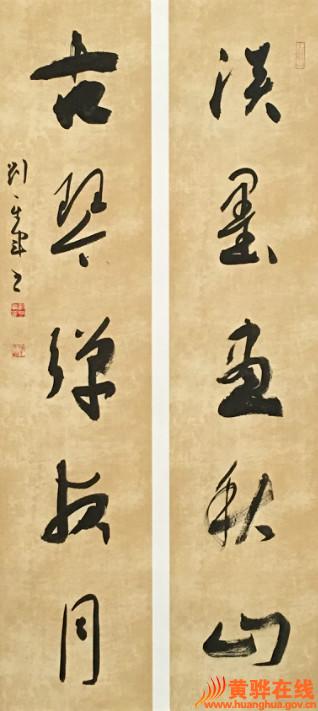 淡墨画秋山
古琴弹夜月
黄骅在线
www.huanghua.gov.cn